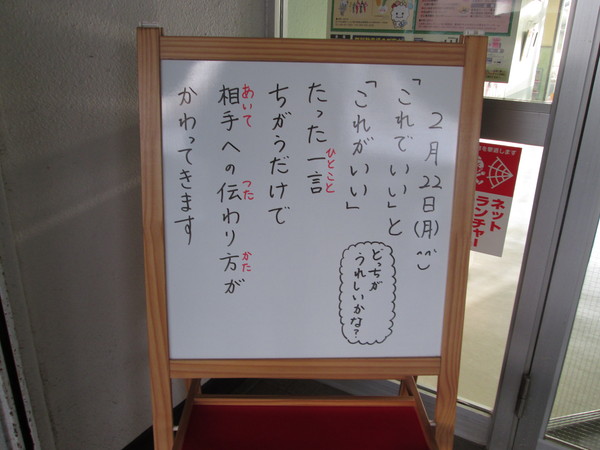 2月22日(月)^^
「これでいい」と
「これがいい」
たった一言
ひとこと
ちがうだけで
相手への伝わり方が
あいて
つた
かた
かわってきます
どっちが
うれしいかな?
ネット
ランチャー